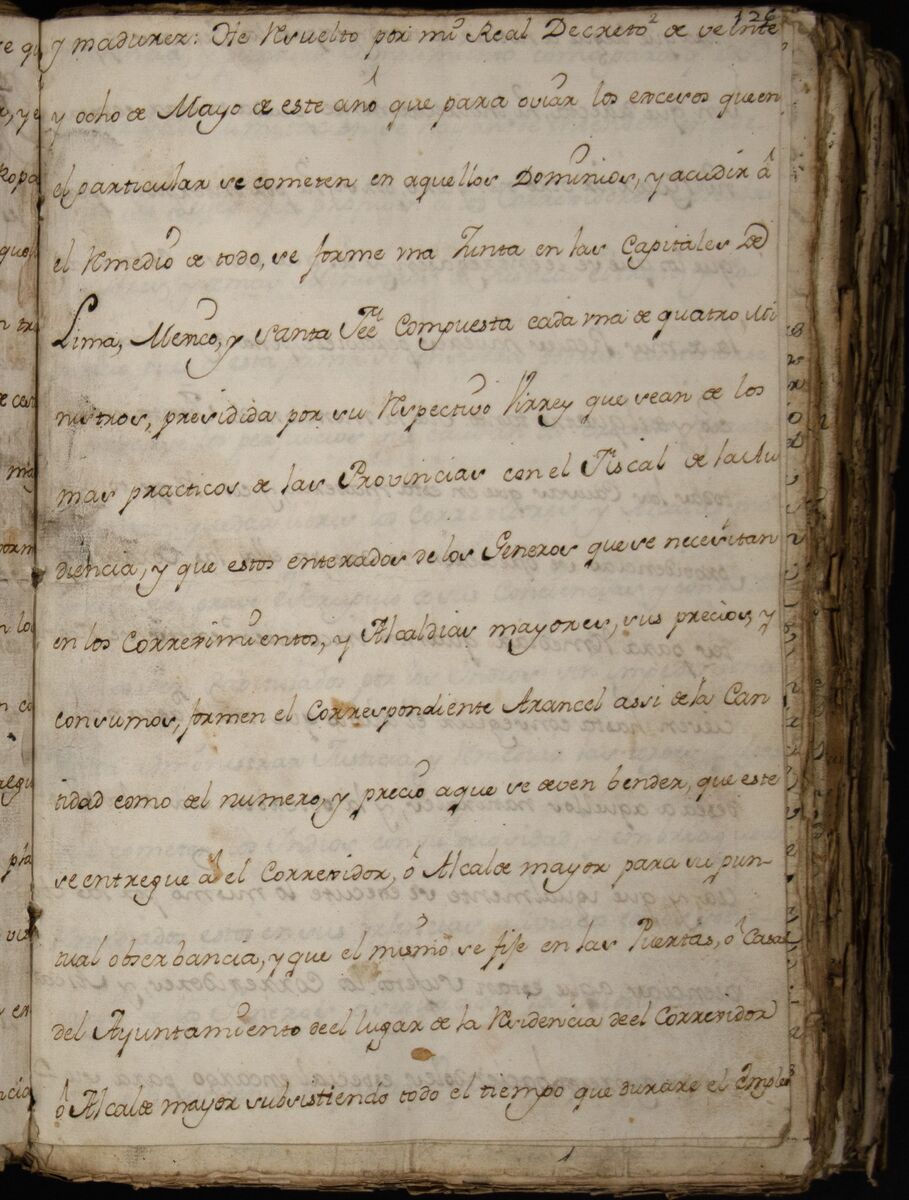 126
y madurez: He Resuelto por mi Real Decreto de veinte
y ocho de Mayo de este año que para oviar los excesos que en
el particular se cometen en aquellos Dominios, y acudir â
el Remedio de todo, se forme vna Junta en las Capitales de
Lima, Mexico, y Santa Feê Compuesta cada vna de quatro Mi
nistros, presidida por su Respectivo Virrey que sean de los
mas practicos de las Provincias con el Fiscal de la Au
diencia, y que estos enterados de los Generos que se necesitan
en los Corregimientos, y Alcaldias mayores, sus precios, y
consumos, formen el Correspondiente Arancel assi de la Can
tidad como del numero, y precio aque se deven bender, que este
se entregue â el Corregidor, ô Alcalde mayor para su pun-
tual obserbancia, y que el mismo se fije en las Puertas, ô Casas
del Ayuntamiento de el lugar de la Residencia de el Corregidor
ô Alcalde mayor subsistiendo todo el tiempo que durare el Empleo